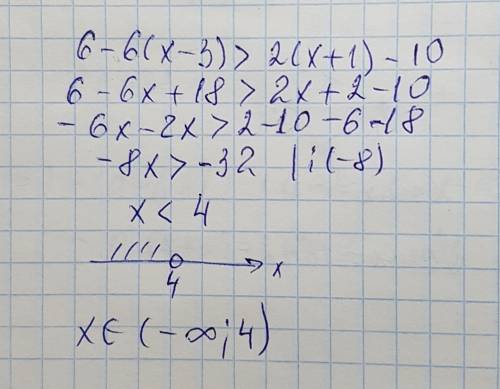 6 - 6(x - 3) > 2(x + 1) - 10
6 - 6x + 18 > 2x + 2 - 10
- 6x - 2x > 2 - 10 - 6 - 18
- 8x > - 32 | : (-8)
x < 4
x
4
x ∈ (-∞; 4)